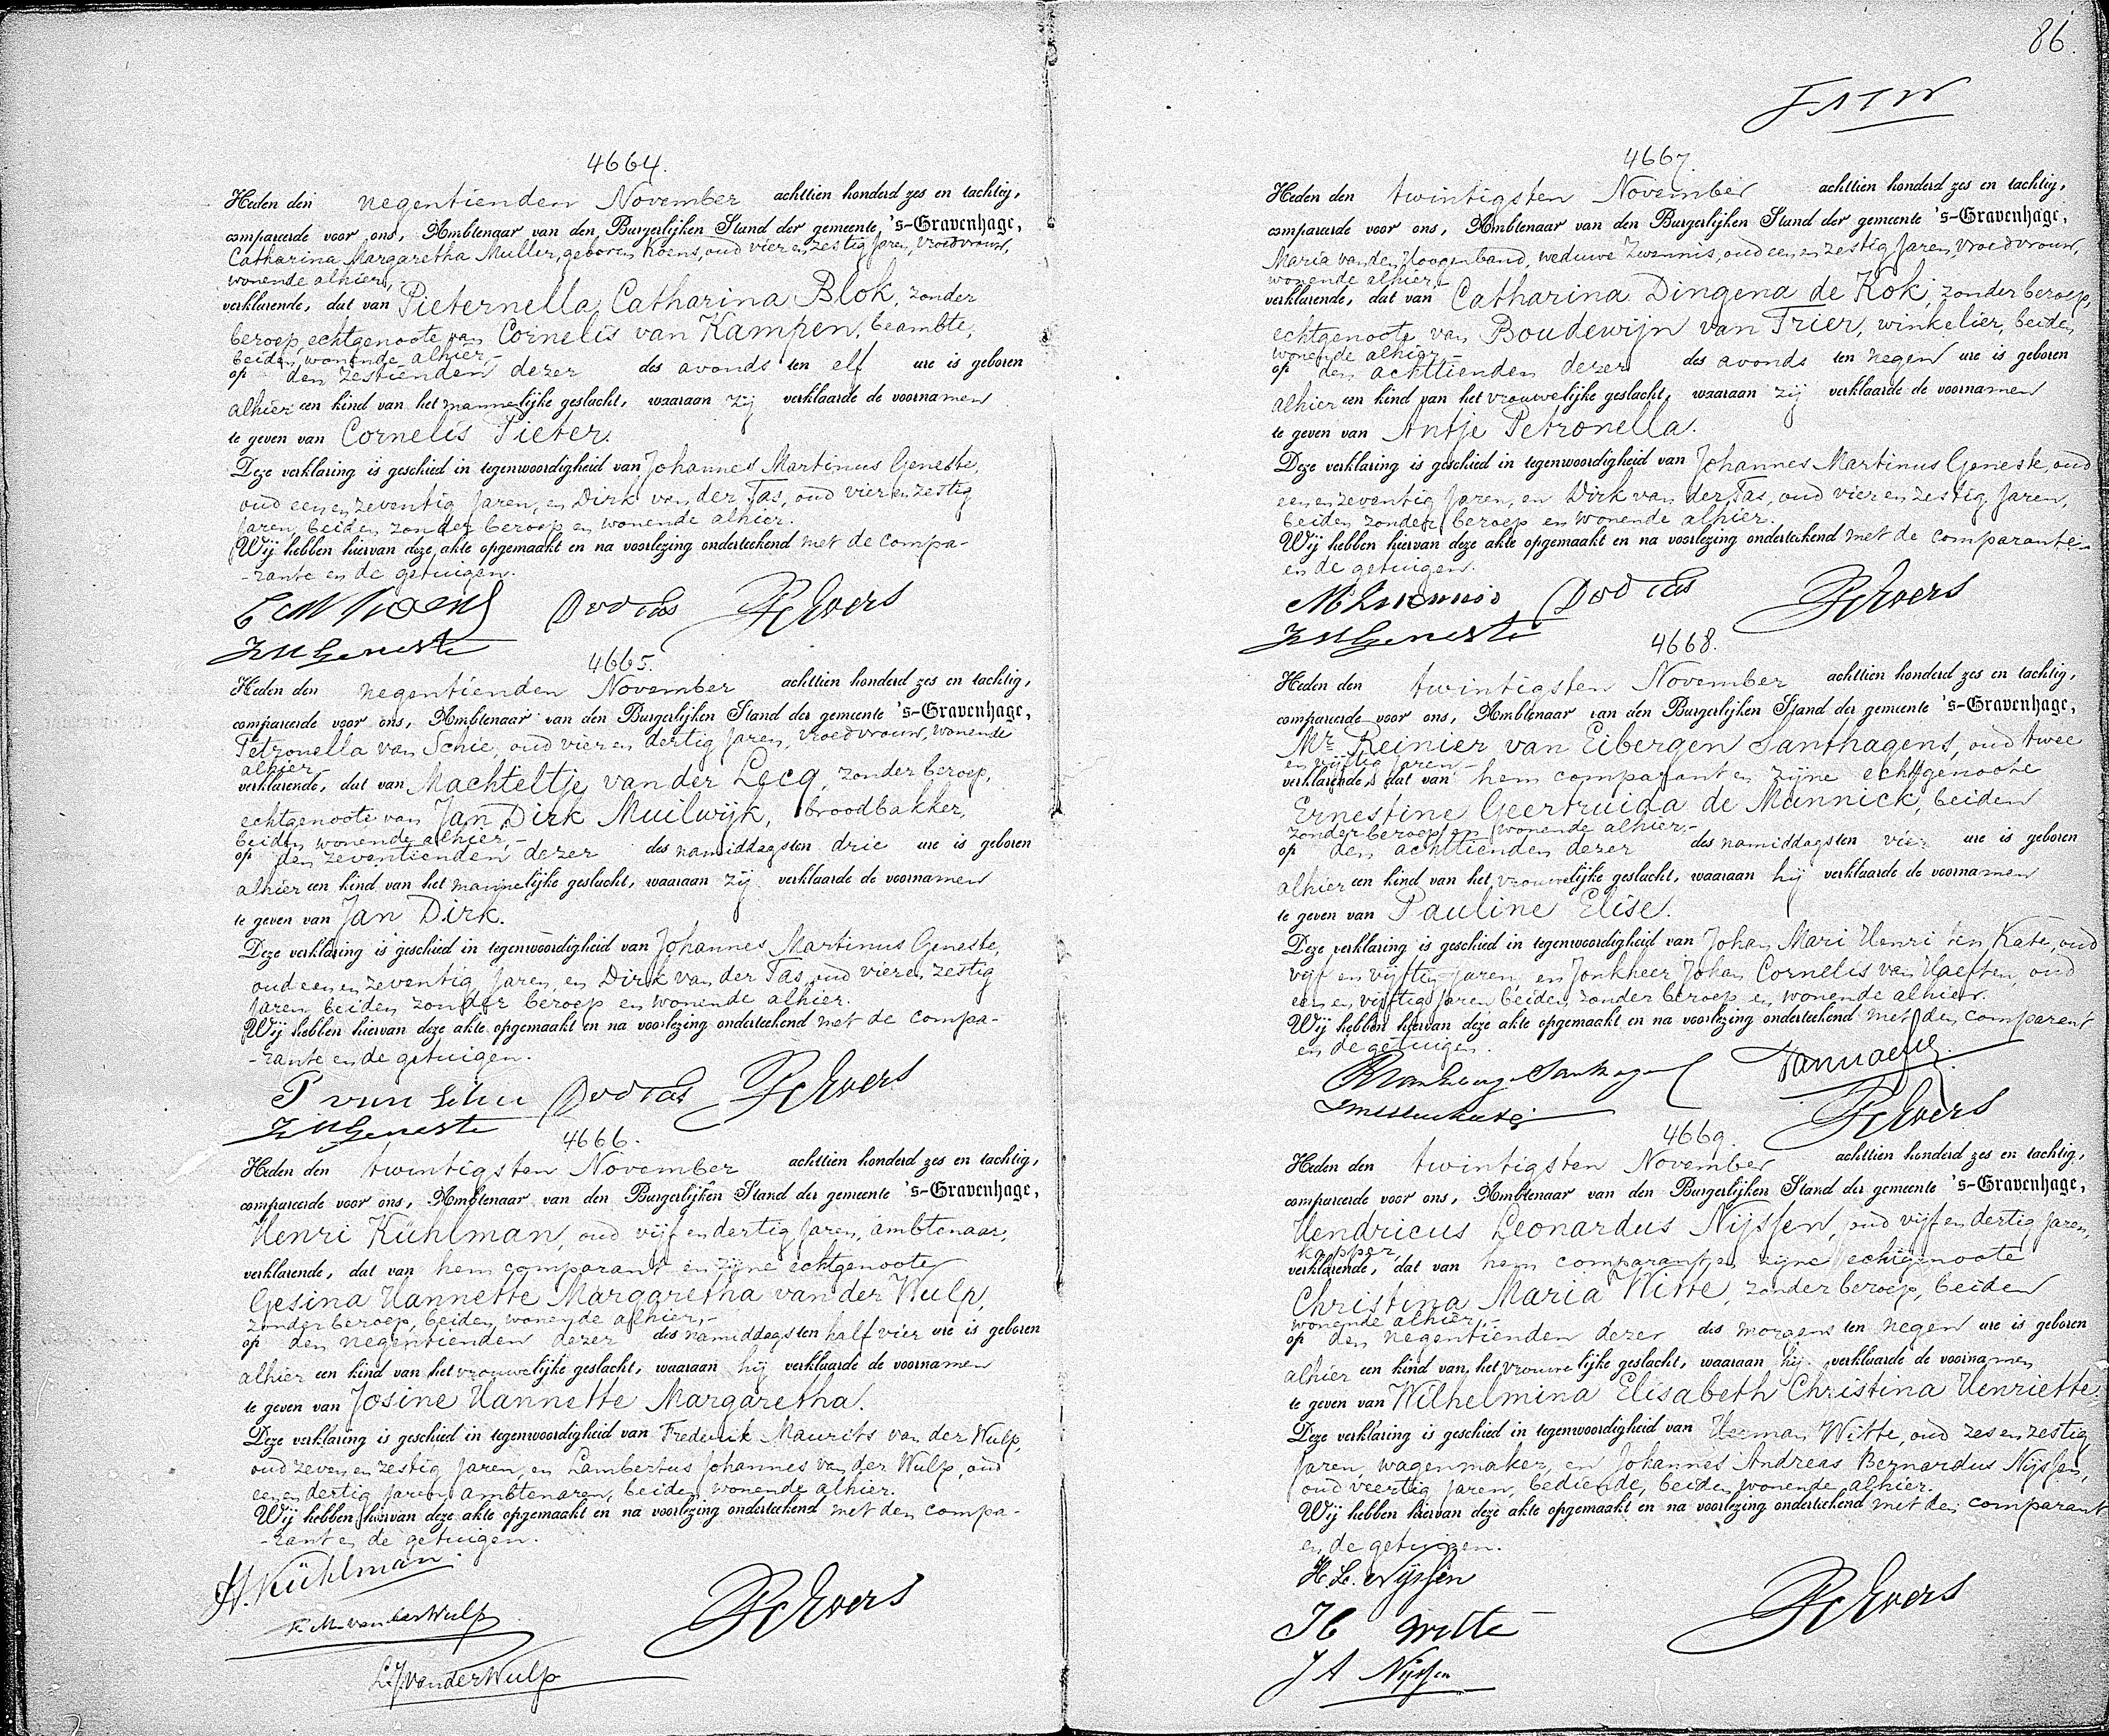 4664.
Heden den negentienden November achttien honderd zes en tachtig,
compareerde voor ons, Ambtenaar van den Burgerlijken Stand der gemeente 's-Gravenhage,
Catharina Margaretha Muller, geboren Koens, oud vier en zestig jaren, vroedvrouw,
wonende alhier,
verklarende, dat van Pieternella Catharina Blok, zonder
beroep, echtgenoote van Cornelis van Kampen, beambte,
beiden wonende alhier,-
op den zestienden dezer des avonds ten elf ure is geboren
alhier een kind van het mannelijke geslacht, waaraan zij verklaarde de voornamen
te geven van Cornelis Pieter.
Deze verklaring is geschied in tegenwoordigheid van Johannes Martinus Geneste,
oud een en zeventig jaren, en Dirk van der Tas, oud vier en zestig
jaren, beiden zonder beroep en wonende alhier.
Wij hebben hiervan deze akte opgemaakt en na voorlezing onderteekend met de compa-
-rante en de getuigen.
C M Koens DvdTas Evers
JMGeneste
4665.
Heden den negentienden November achttien honderd zes en tachtig,
compareerde voor ons, Ambtenaar van den Burgerlijken Stand der gemeente 's-Gravenhage,
Petronella van Schie, oud vier en dertig jaren, vroedvrouw, wonende
alhier
verklarende, dat van Machteltje van der Lecq, zonder beroep,
echtgenoote van Jan Dirk Muilwijk, broodbakker,
beiden wonende alhier,-
op den zeventienden dezer des namiddags ten drie ure is geboren
alhier een kind van het mannelijke geslacht, waaraan zij verklaarde de voornamen
te geven van Jan Dirk.
Deze verklaring is geschied in tegenwoordigheid van Johannes Martinus Geneste,
oud een en zeventig jaren, en Dirk van der Tas, oud vier en zestig
jaren, beiden zonder beroep en wonende alhier.
Wij hebben hiervan deze akte opgemaakt en na voorlezing onderteekend met de compa-
-rante en de getuigen.
P van Schie DvdTas Evers
JMGeneste
4666.
Heden den twintigsten November achttien honderd zes en tachtig,
compareerde voor ons, Ambtenaar van den Burgerlijken Stand der gemeente 's-Gravenhage,
Henri Kühlman, oud vijf en dertig jaren, ambtenaar,
verklarende, dat van hem comparant en zijne echtgenoote
Gesina Hannette Margaretha van der Wulp,
zonder beroep, beiden wonende alhier,-
op den negentienden dezer des namiddags ten half vier ure is geboren
alhier een kind van het vrouwelijke geslacht, waaraan hij verklaarde de voornamen
te geven van Josine Hannette Margaretha.
Deze verklaring is geschied in tegenwoordigheid van Frederik Maurits van der Wulp,
oud zeven en zestig jaren, en Lambertus Johannes van der Wulp, oud
een en dertig jaren, ambtenaren, beiden wonende alhier.
Wij hebben hiervan deze akte opgemaakt en na voorlezing onderteekend met den compa-
-rant en de getuigen.
H. Kühlman
F. M. van der Wulp Evers
L.J. van der Wulp
86.
4667
Heden den twintigsten November achttien honderd zes en tachtig,
compareerde voor ons, Ambtenaar van den Burgerlijken Stand der gemeente 's-Gravenhage,
Maria van den Hoogenband, weduwe Zwennis, oud een en zestig jaren, vroedvrouw,
wonende alhier,-
verklarende, dat van Catharina Dingena de Kok, zonder beroep,
echtgenoote van Boudewijn van Trier, winkelier, beiden
wonende alhier,-
op den achttienden dezer des avonds ten negen ure is geboren
alhier een kind van het vrouwelijke geslacht, waaraan zij verklaarde de voornamen
te geven van Antje Petronella.
Deze verklaring is geschied in tegenwoordigheid van Johannes Martinus Geneste, oud
een en zeventig jaren, en Dirk van der Tas, oud vier en zestig jaren,
beiden zonder beroep en wonende alhier.
Wij hebben hiervan deze akte opgemaakt en na voorlezing onderteekend met de comparante
en de getuigen.
M Zwennis DvdTas Evers
JMGeneste
4668.
Heden den twintigsten November achttien honderd zes en tachtig,
compareerde voor ons, Ambtenaar van den Burgerlijken Stand der gemeente 's-Gravenhage,
Mr Reinier van Eibergen Santhagens, oud twee
en vijftig jaren-
verklarende, dat van hem comparant en zijne echtgenoote
Ernestine Geertruida de Munnick, beiden
zonder beroep en wonende alhier,-
op den achttienden dezer des namiddags ten vier ure is geboren
alhier een kind van het vrouwelijke geslacht, waaraan hij verklaarde de voornamen
te geven van Pauline Elise.
Deze verklaring is geschied in tegenwoordigheid van Johan Mari Henri ten Kate, oud
vijf en vijftig jaren, en Jonkheer Johan Cornelis van Haeften, oud
een en vijftig jaren, beiden zonder beroep en wonende alhier.
Wij hebben hiervan deze akte opgemaakt en na voorlezing onderteekend met den comparant
en de getuigen.
Evers
4669.
Heden den twintigsten November achttien honderd zes en tachtig,
compareerde voor ons, Ambtenaar van den Burgerlijken Stand der gemeente 's-Gravenhage,
Hendricus Leonardus Nijssen, oud vijf en dertig jaren,
kapper,
verklarende, dat van hem comparant en zijne echtgenoote
Christina Maria Witte, zonder beroep, beiden
wonende alhier,-
op den negentienden dezer des morgens ten negen ure is geboren
alhier een kind van het vrouwelijke geslacht, waaraan hij verklaarde de voornamen
te geven van Wilhelmina Elisabeth Christina Henriette.
Deze verklaring is geschied in tegenwoordigheid van Herman Witte, oud zes en zestig
jaren, wagenmaker, en Johannes Andreas Bernardus Nijssen,
oud veertig jaren, bediende, beiden wonende alhier.
Wij hebben hiervan deze akte opgemaakt en na voorlezing onderteekend met den comparant
en de getuigen.
H. L. Nijssen
H Witte Evers
J A Nijssen